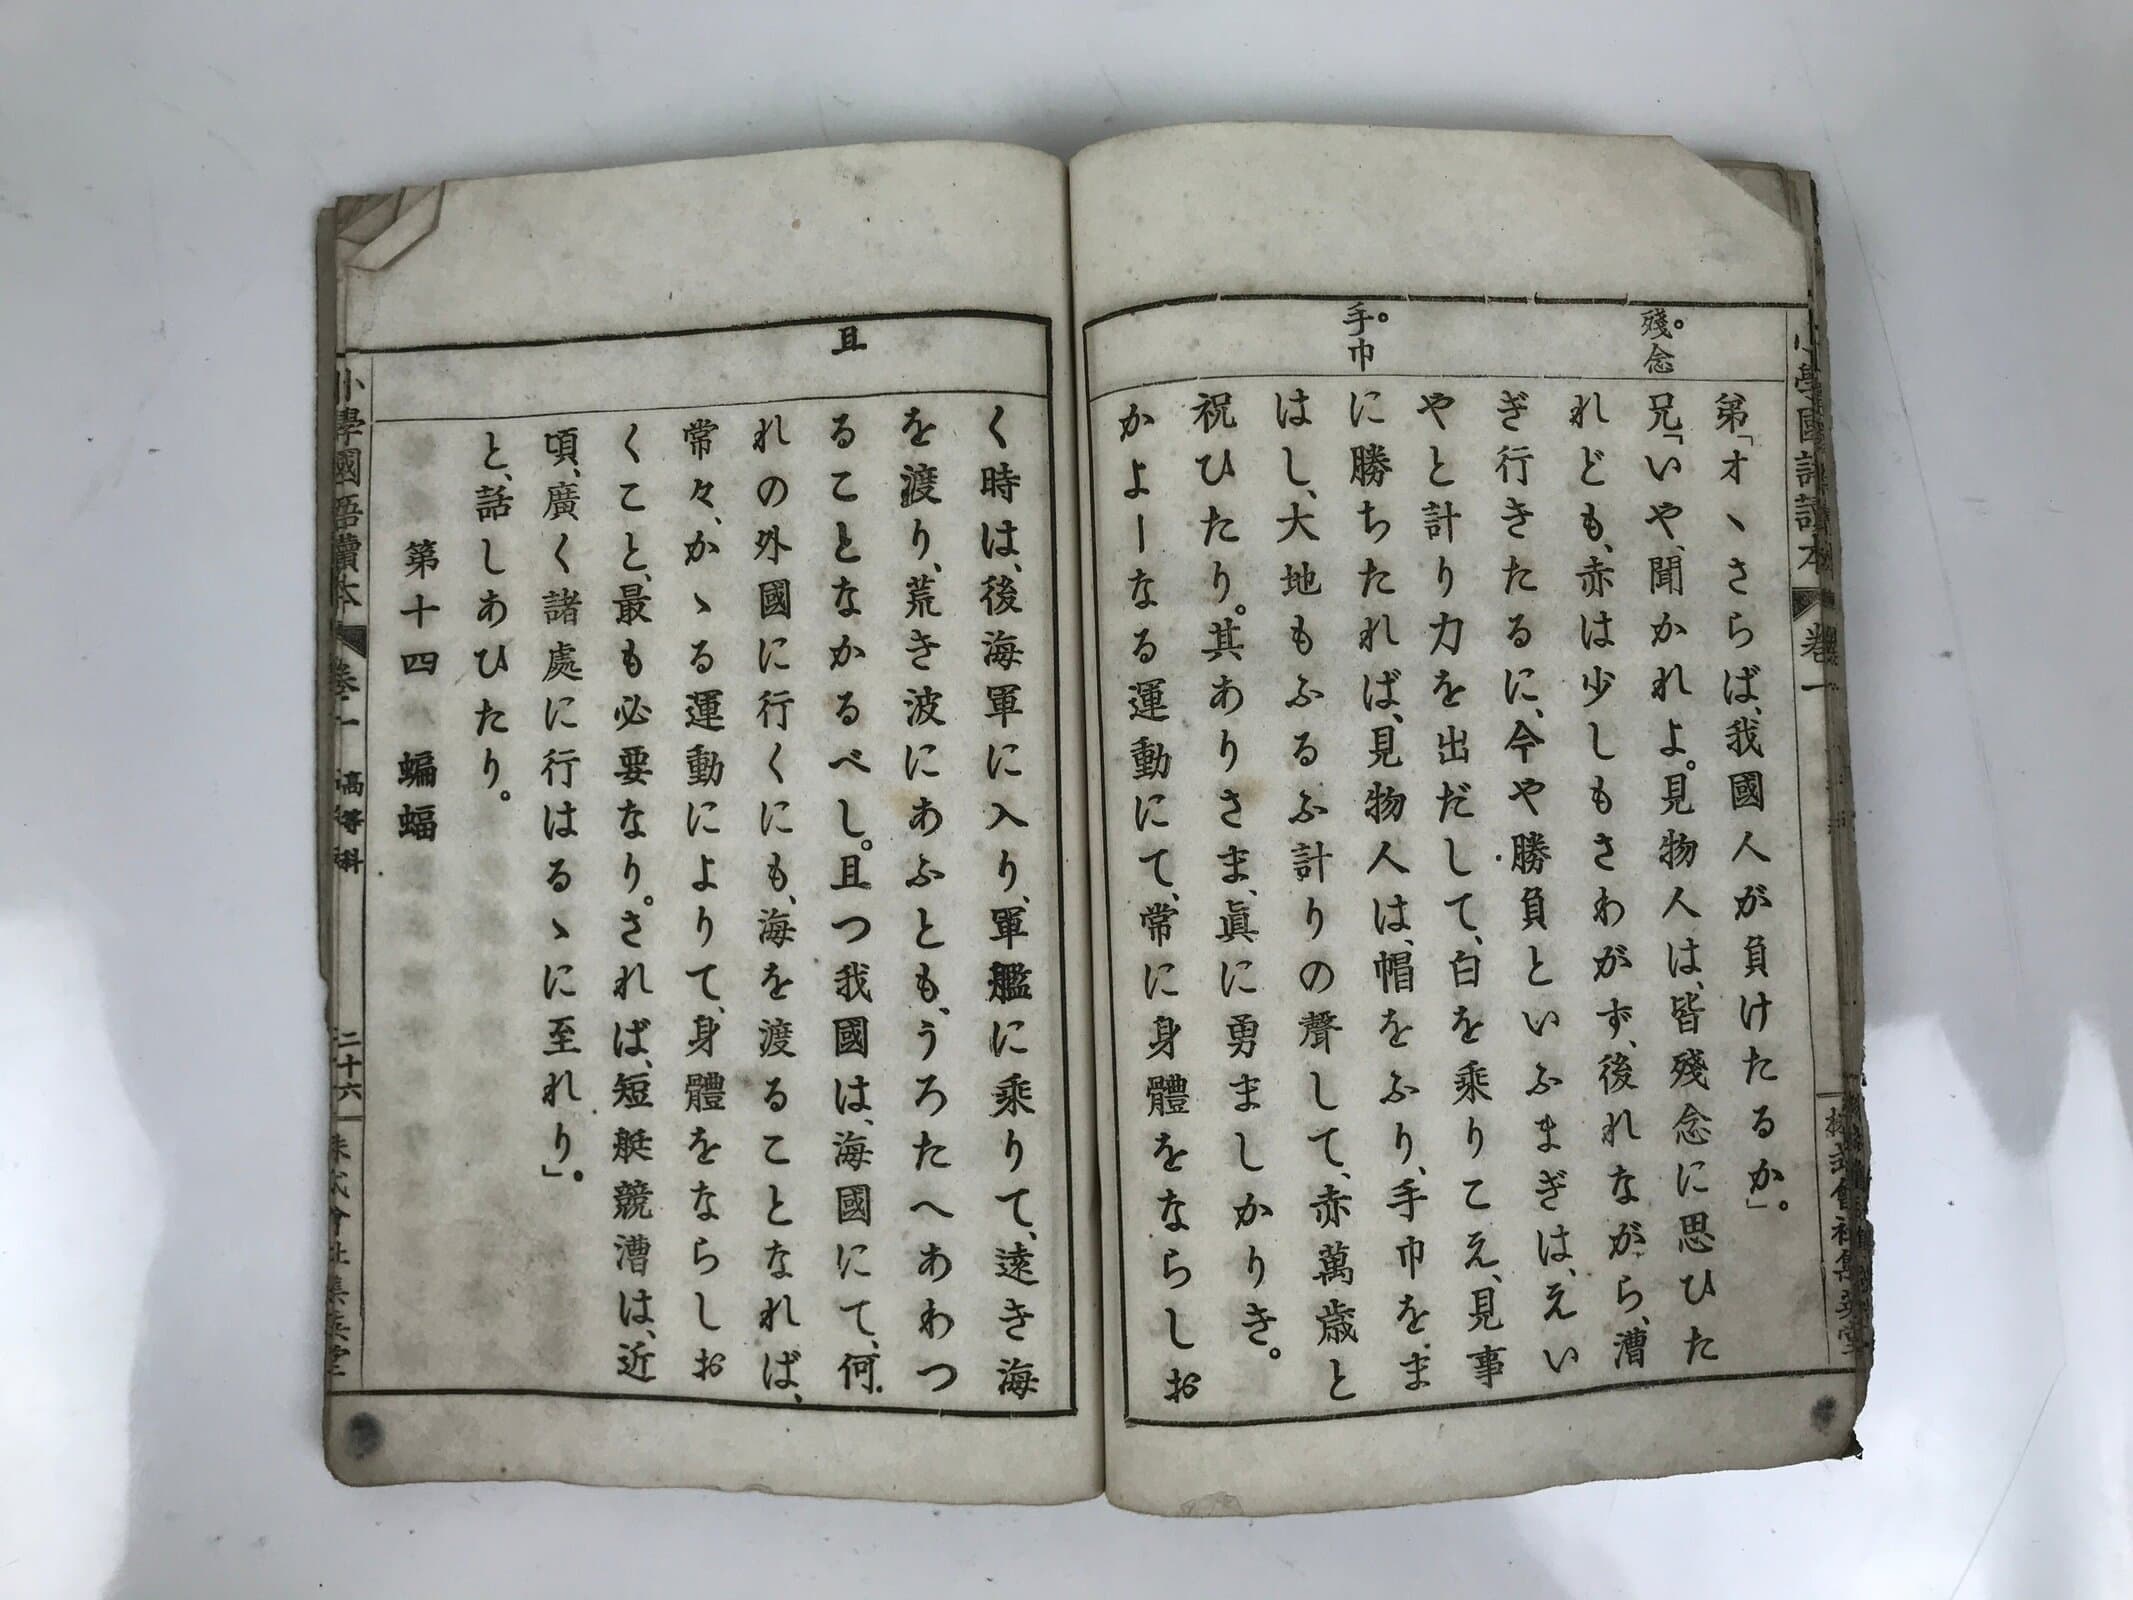 小學國語讀本 卷一
株式會社集英堂
殘念
手巾
弟「オヽさらば、我國人が負けたるか」。
兄「いや、聞かれよ。見物人は、皆殘念に思ひた
れども、赤は少しもさわがず、後れながら、漕
ぎ行きたるに、今や勝負といふまぎは、えい
やと計り力を出だして、白を乘りこえ、見事
に勝ちたれば、見物人は、帽をふり、手巾を、ま
はし、大地もふるふ計りの聲して、赤萬歳と
祝ひたり。其ありさま、眞に勇ましかりき。
かよーなる運動にて、常に身體をならしお
且
く時は、後海軍に入り、軍艦に乘りて、遠き海
を渡り、荒き波にあふとも、うろたへあわつ
ることなかるべし。且つ我國は、海國にて、何
れの外國に行くにも、海を渡ることなれば、
常々、かゝる運動によりて、身體をならしお
くこと、最も必要なり。されば、短艇競漕は、近
頃、廣く諸處に行はるゝに至れり」。
と、話しあひたり。
第十四 蝙蝠
小學國語讀本 卷一 高等科 二十六 株式會社集英堂